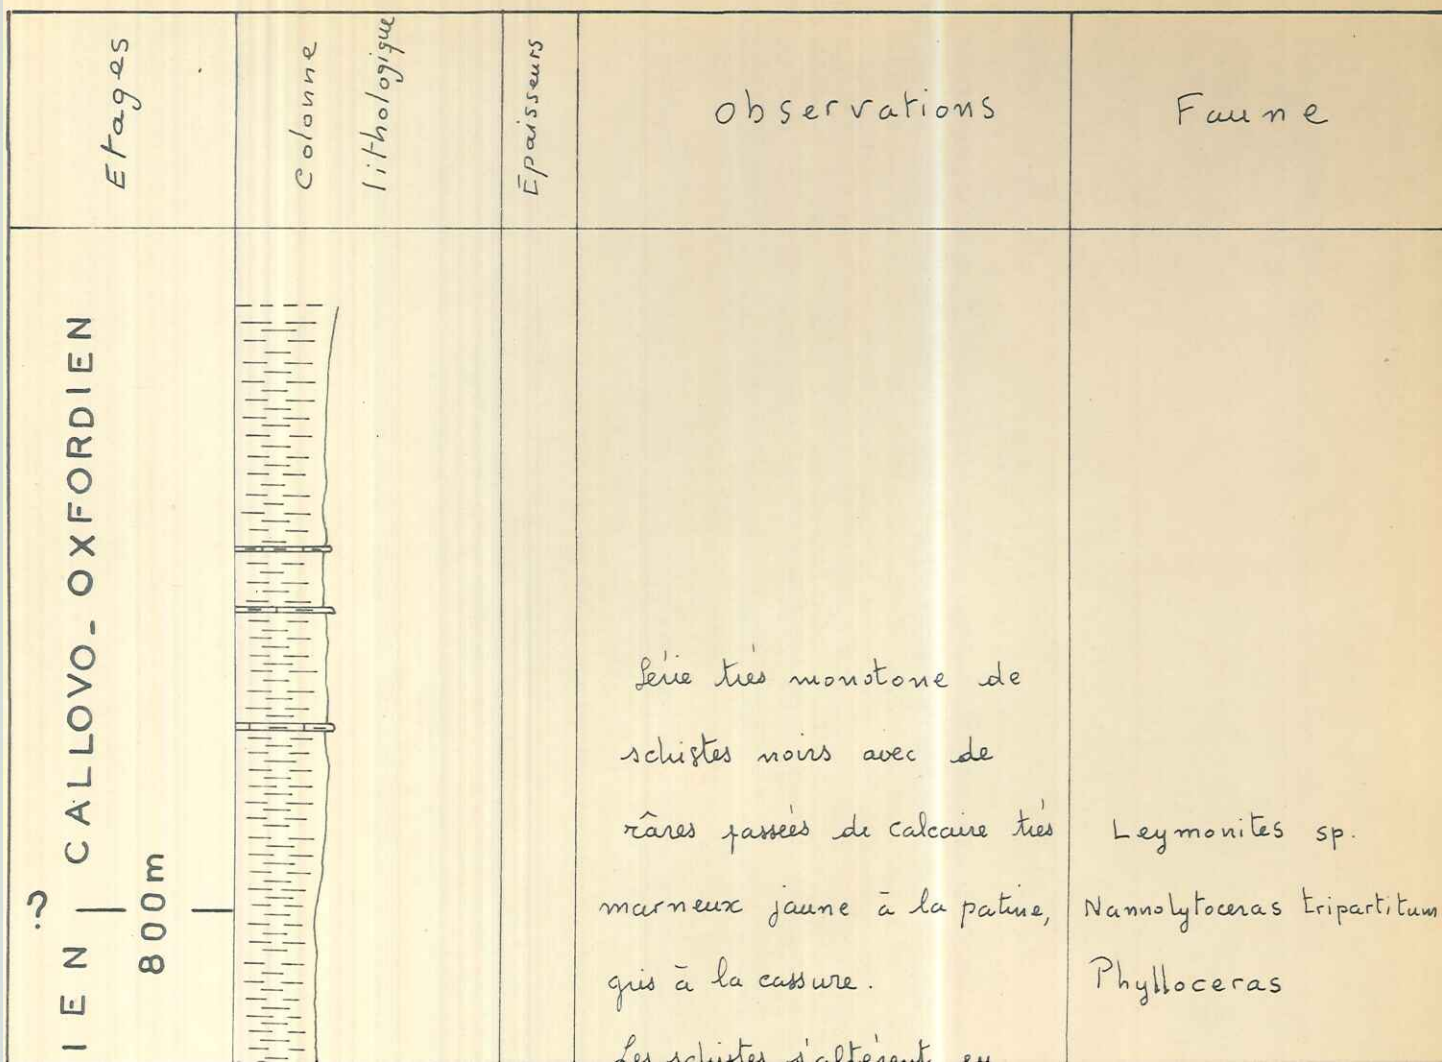 Etages
Colonne
lithologique
Epaisseurs
Observations
Faune
CALLOVO_OXFORDIEN
?
IEN
800m
Série très monotone de
schistes noirs avec de
râres passées de calcaire très
marneux jaune à la patine,
gris à la cassure.
Les schistes s'altèrent en
Leymonites sp.
Nannolytoceras tripartitum
Phylloceras